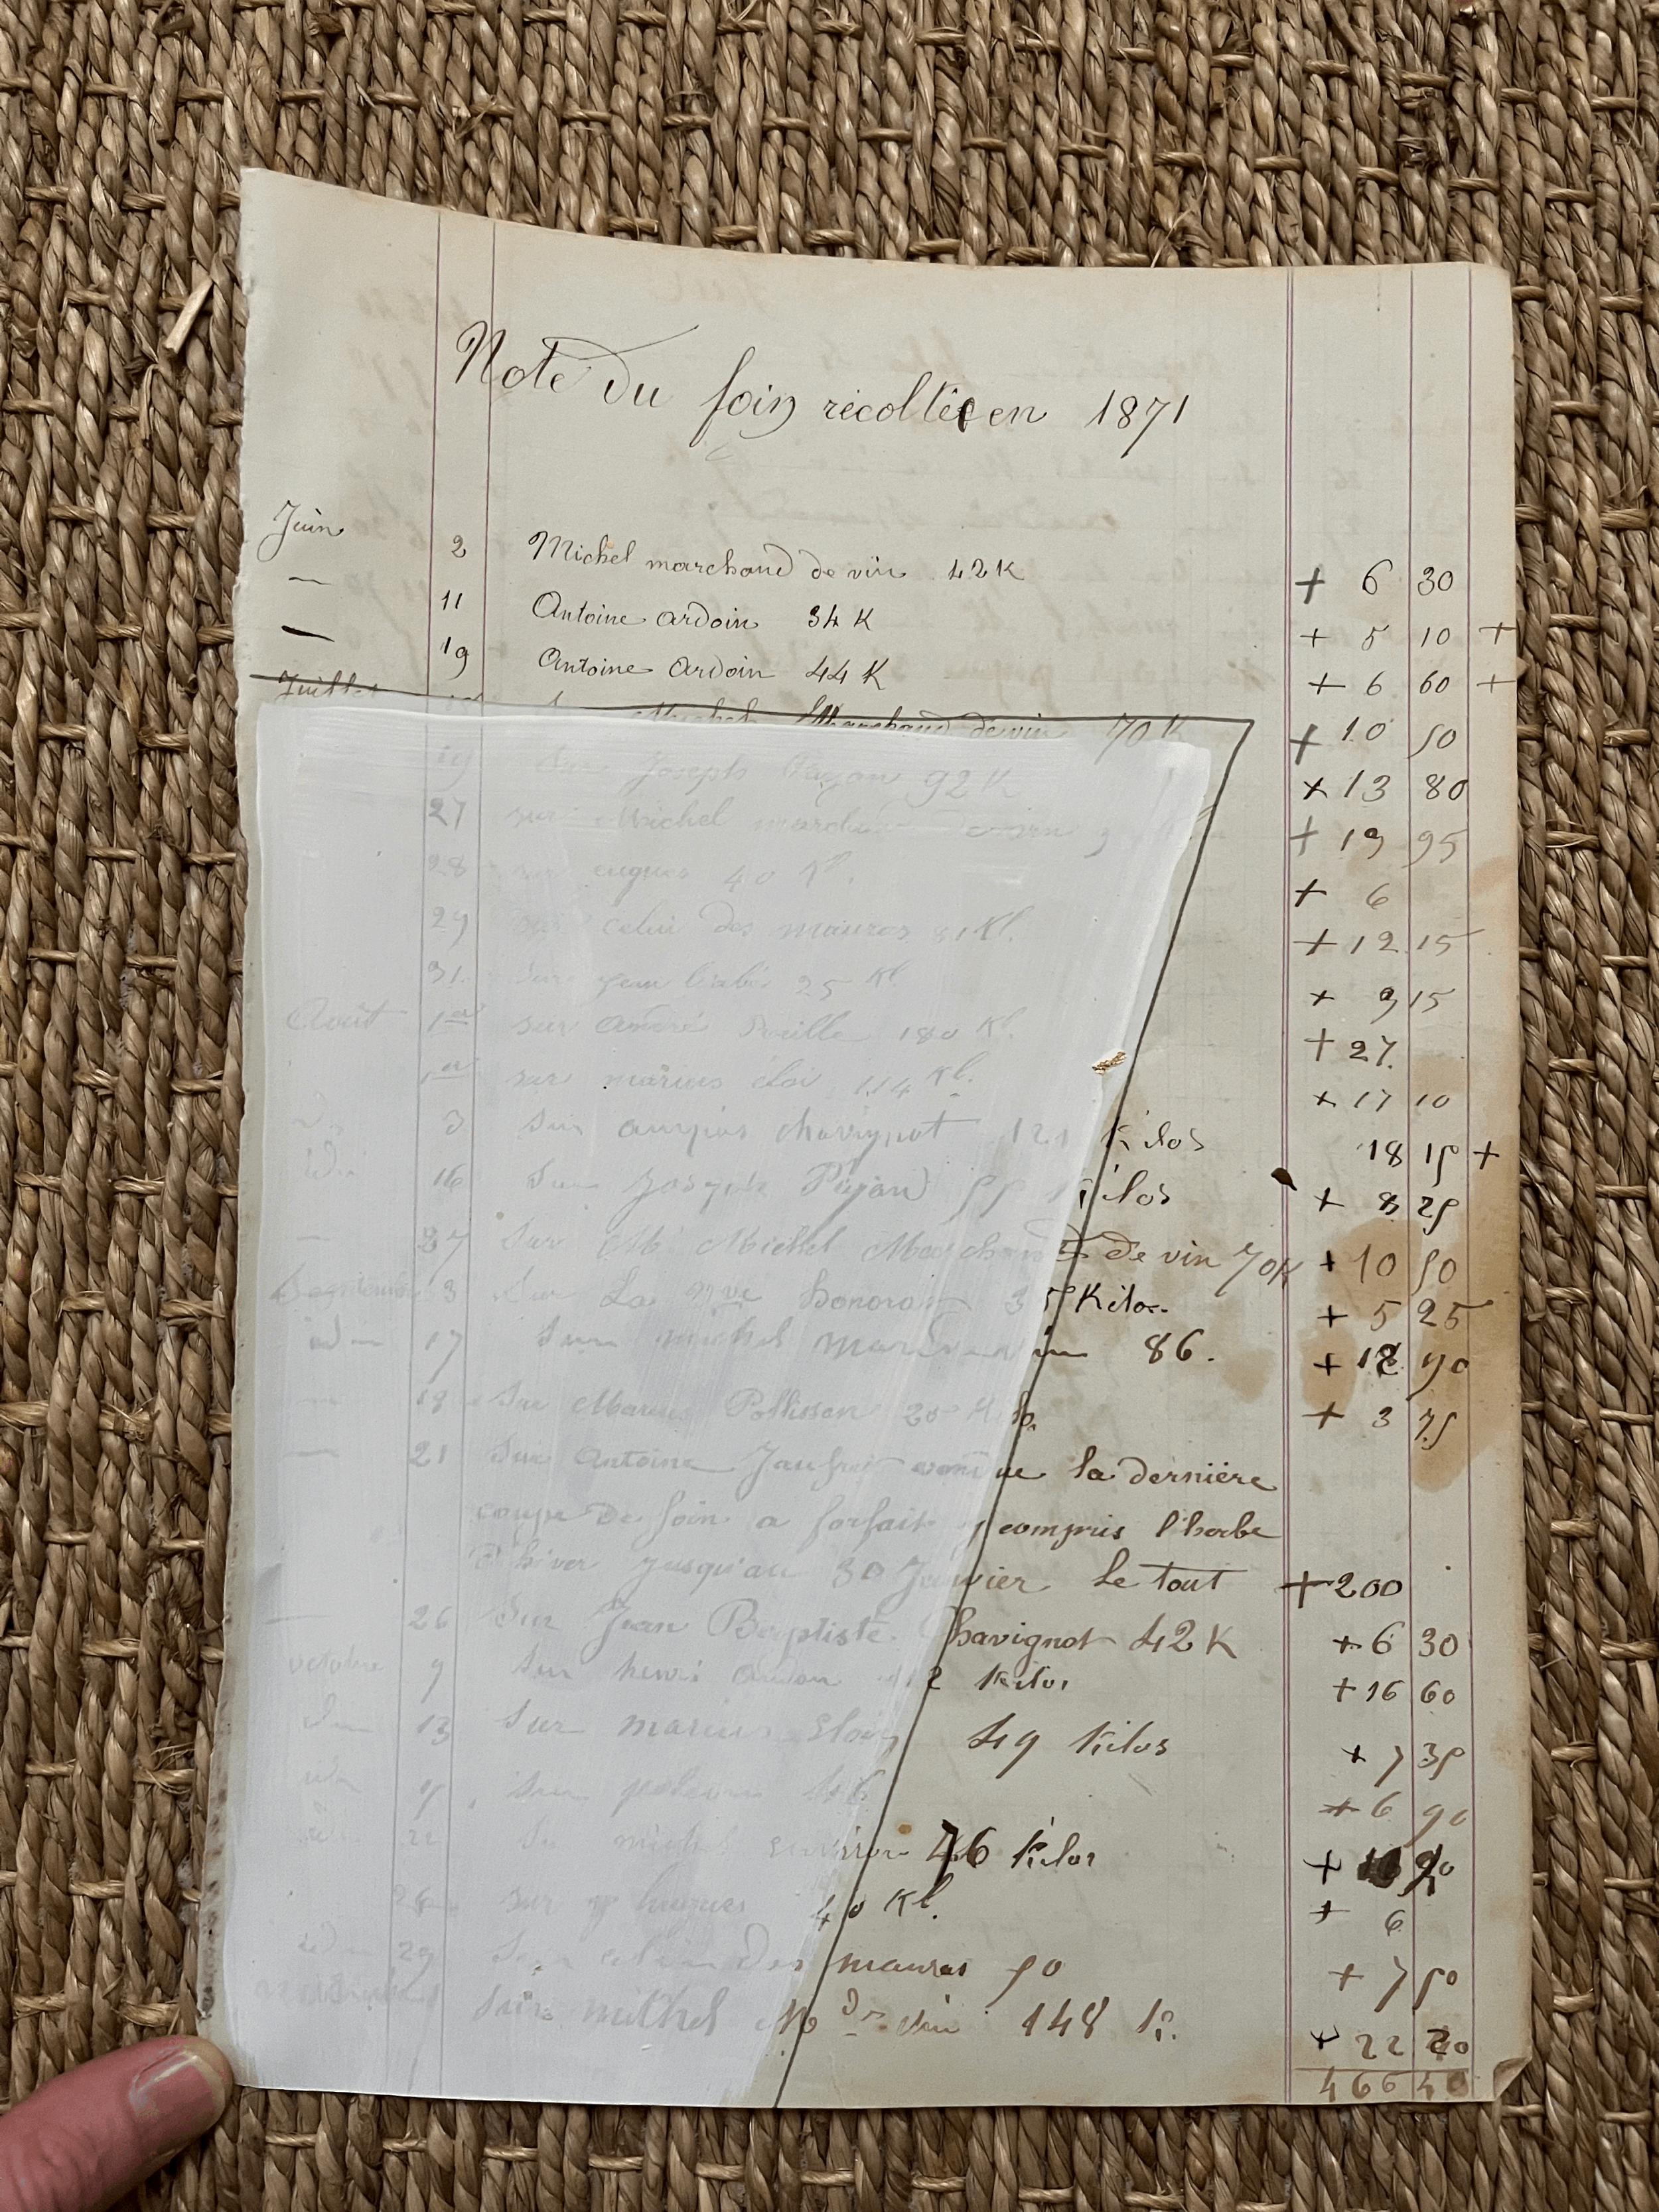 Note du foin récoltée en 1871
Juin 2 Michel marchand de vin 42 K + 6 30
— 11 Antoine ardoin 34 K + 5 10 +
— 19 Antoine ardoin 44 K + 6 60 +
Juillet Michel Marchand de vin 70 K + 10 50
19 Sur Joseph 92 K + 13 80
27 sur Michel marchand + 19 95
28 sur 40 Kl. + 6
29 sur celui des mauras 81 Kl. + 12 15
31. sur jean 25 Kl + 9 15
Août 1er sur André 180 Kl. + 27.
1er sur marius éloi 114 Kl. + 17 10
3 Sur chavignot 121 Kilos 18 15 +
idm 16 Sur Joseph 55 Kilos + 8 25
— 27 Sur M Michel Marchand de vin 70K + 10 50
Septembre 3 Sur La Vve honorat 35 Kilos + 5 25
idm 17 Sur michel 86. + 12 90
— 18 Sur Marius 25 + 3 75
— 21 Sur Antoine Jaufret la dernière
coupe de foin a forfait y compris l'herbe
d'hiver jusqu'au 30 Janvier Le tout + 200
— 26 Sur Jean Baptiste Chavignot 42 K + 6 30
octobre 9 Sur henri 112 Kilos + 16 60
idm 13 Sur marius Eloi 49 Kilos + 7 35
Sur 46 + 6 90
idm 22 Su michel 76 Kilos +
sur hugues 40 Kl. + 6
idm 29 Sur celui des mauras 50 + 7 50
Sur michel Md de vin 148 K. + 22 20
466 40